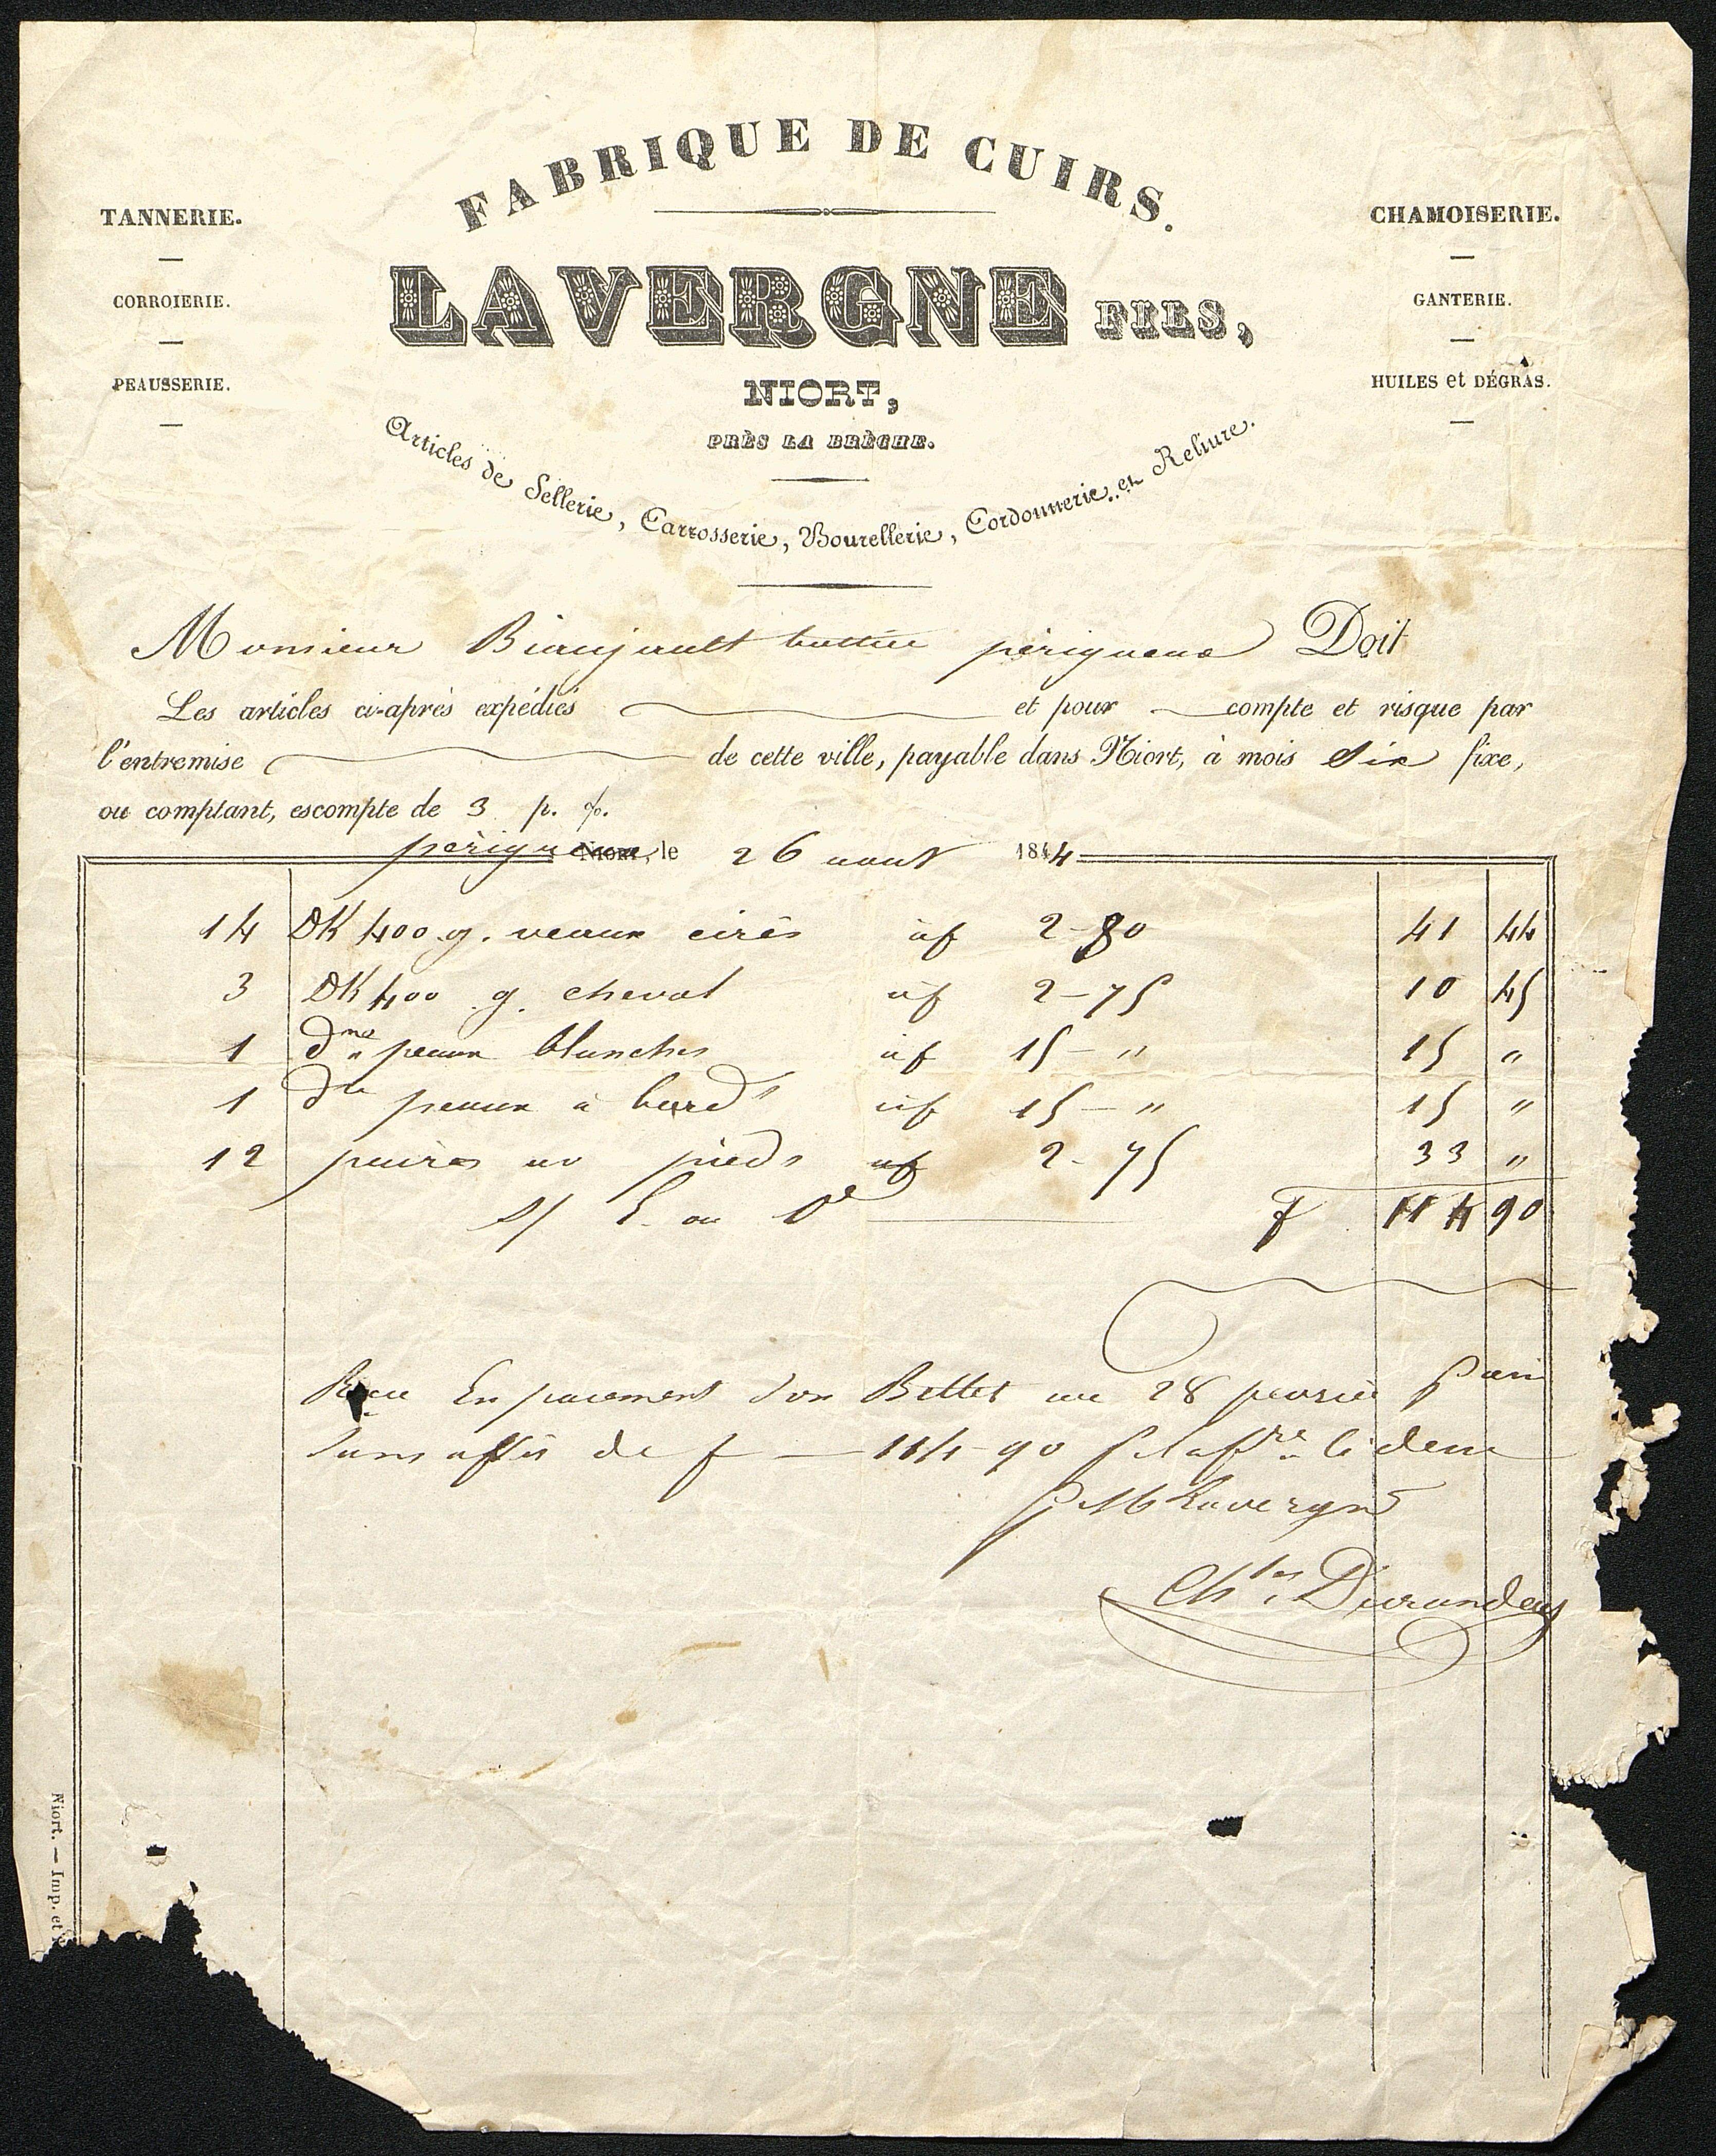 FABRIQUE DE CUIRS.
TANNERIE.
CORROIERIE.
PEAUSSERIE.
CHAMOISERIE.
GANTERIE.
HUILES et DÉGRAS.
LAVERGNE FILS,
NIORT,
PRÈS LA BRÈCHE.
Articles de Sellerie, Carrosserie, Bourellerie, Cordonnerie et Reliure.
Monsieur Biaujault bottier périgueux Doit
Les articles ci-après expédiés et pour compte et risque par
l'entremise de cette ville, payable dans Niort, à mois Six fixe,
ou comptant, escompte de 3 p. %.
périgueux Niort, le 26 aout 1844
14 DK 400 g. veaux cirés à f 2-80 41 44
3 DK 400 g. cheval à f 2-75 10 45
1 dne peaux blanches à f 15-" 15 "
1 dne peaux à bords à f 15-" 15 "
12 paires av pieds à f 2-75 33 "
f 114 90
Reçu En paiement Son Billet au 28 fevrier
de f 114-90
Lavergne
Chles Durandeau
Niort. — Imp. et